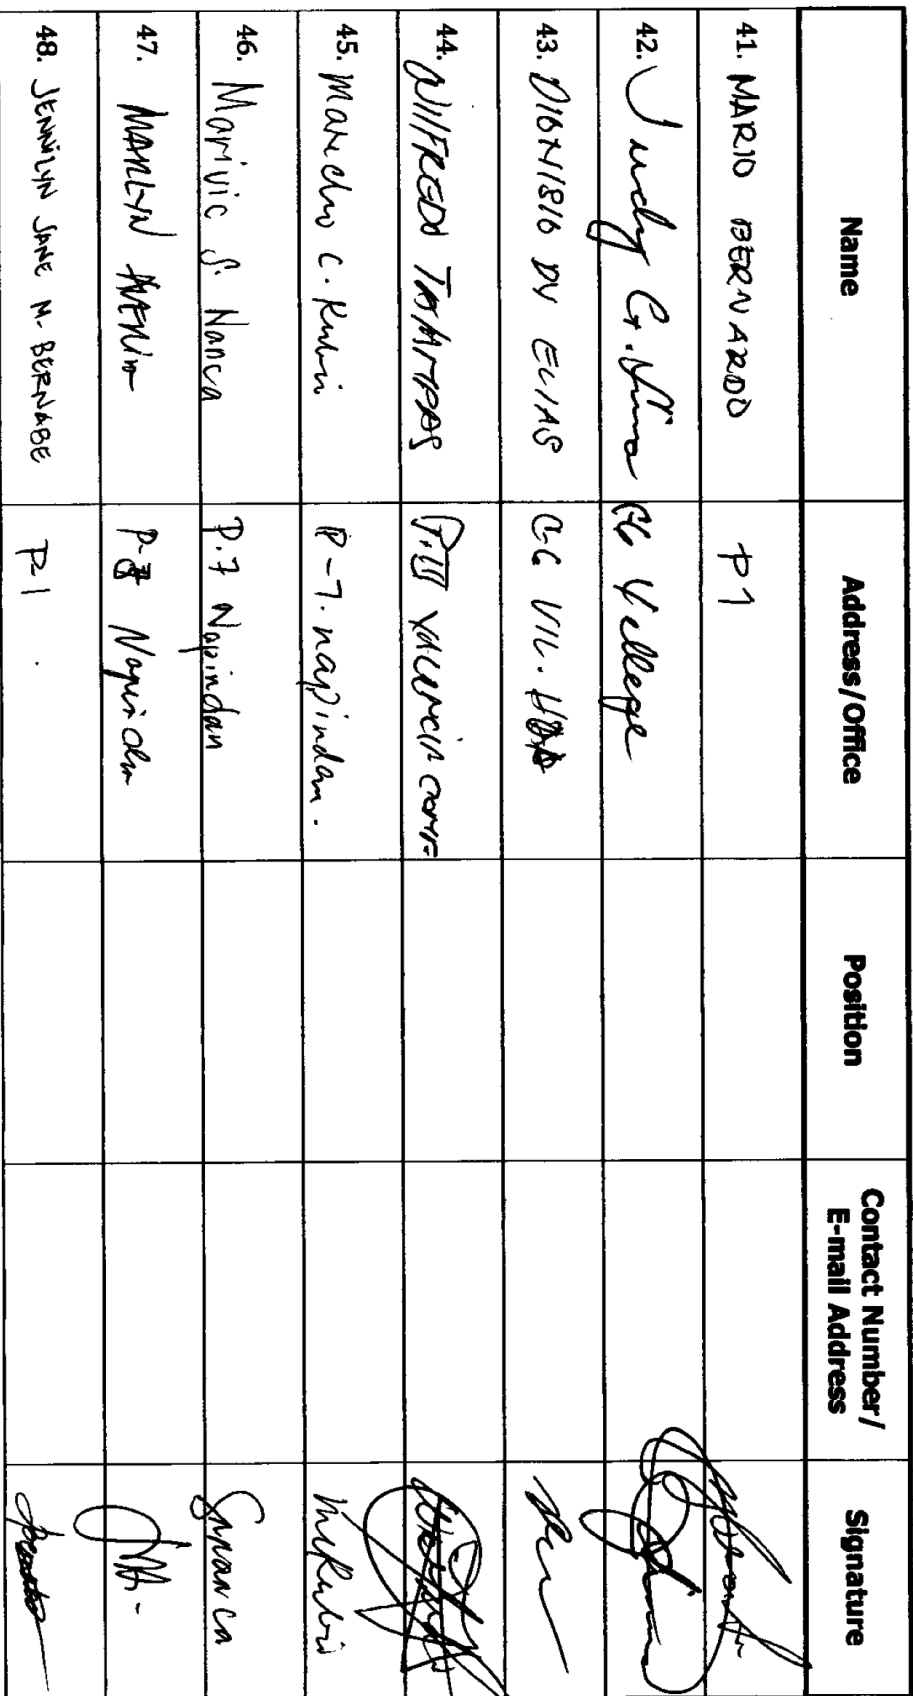 Name Address/Office Position Contact Number/ E-mail Address Signature
41. MARIO BERNARDO P1
42. Judy G. GG Village
43. DIONISIO DV ELIAS GG VIL. HOA
44. WILFREDO P.III VALENCIA COMP
45. Marcelno C. Rubi P-7. napindan.
46. Marivic S. Nanca P.7 Napindan
47. MARLYN P-7 Napindan
48. JENNILYN JANE M. BERNABE P-1